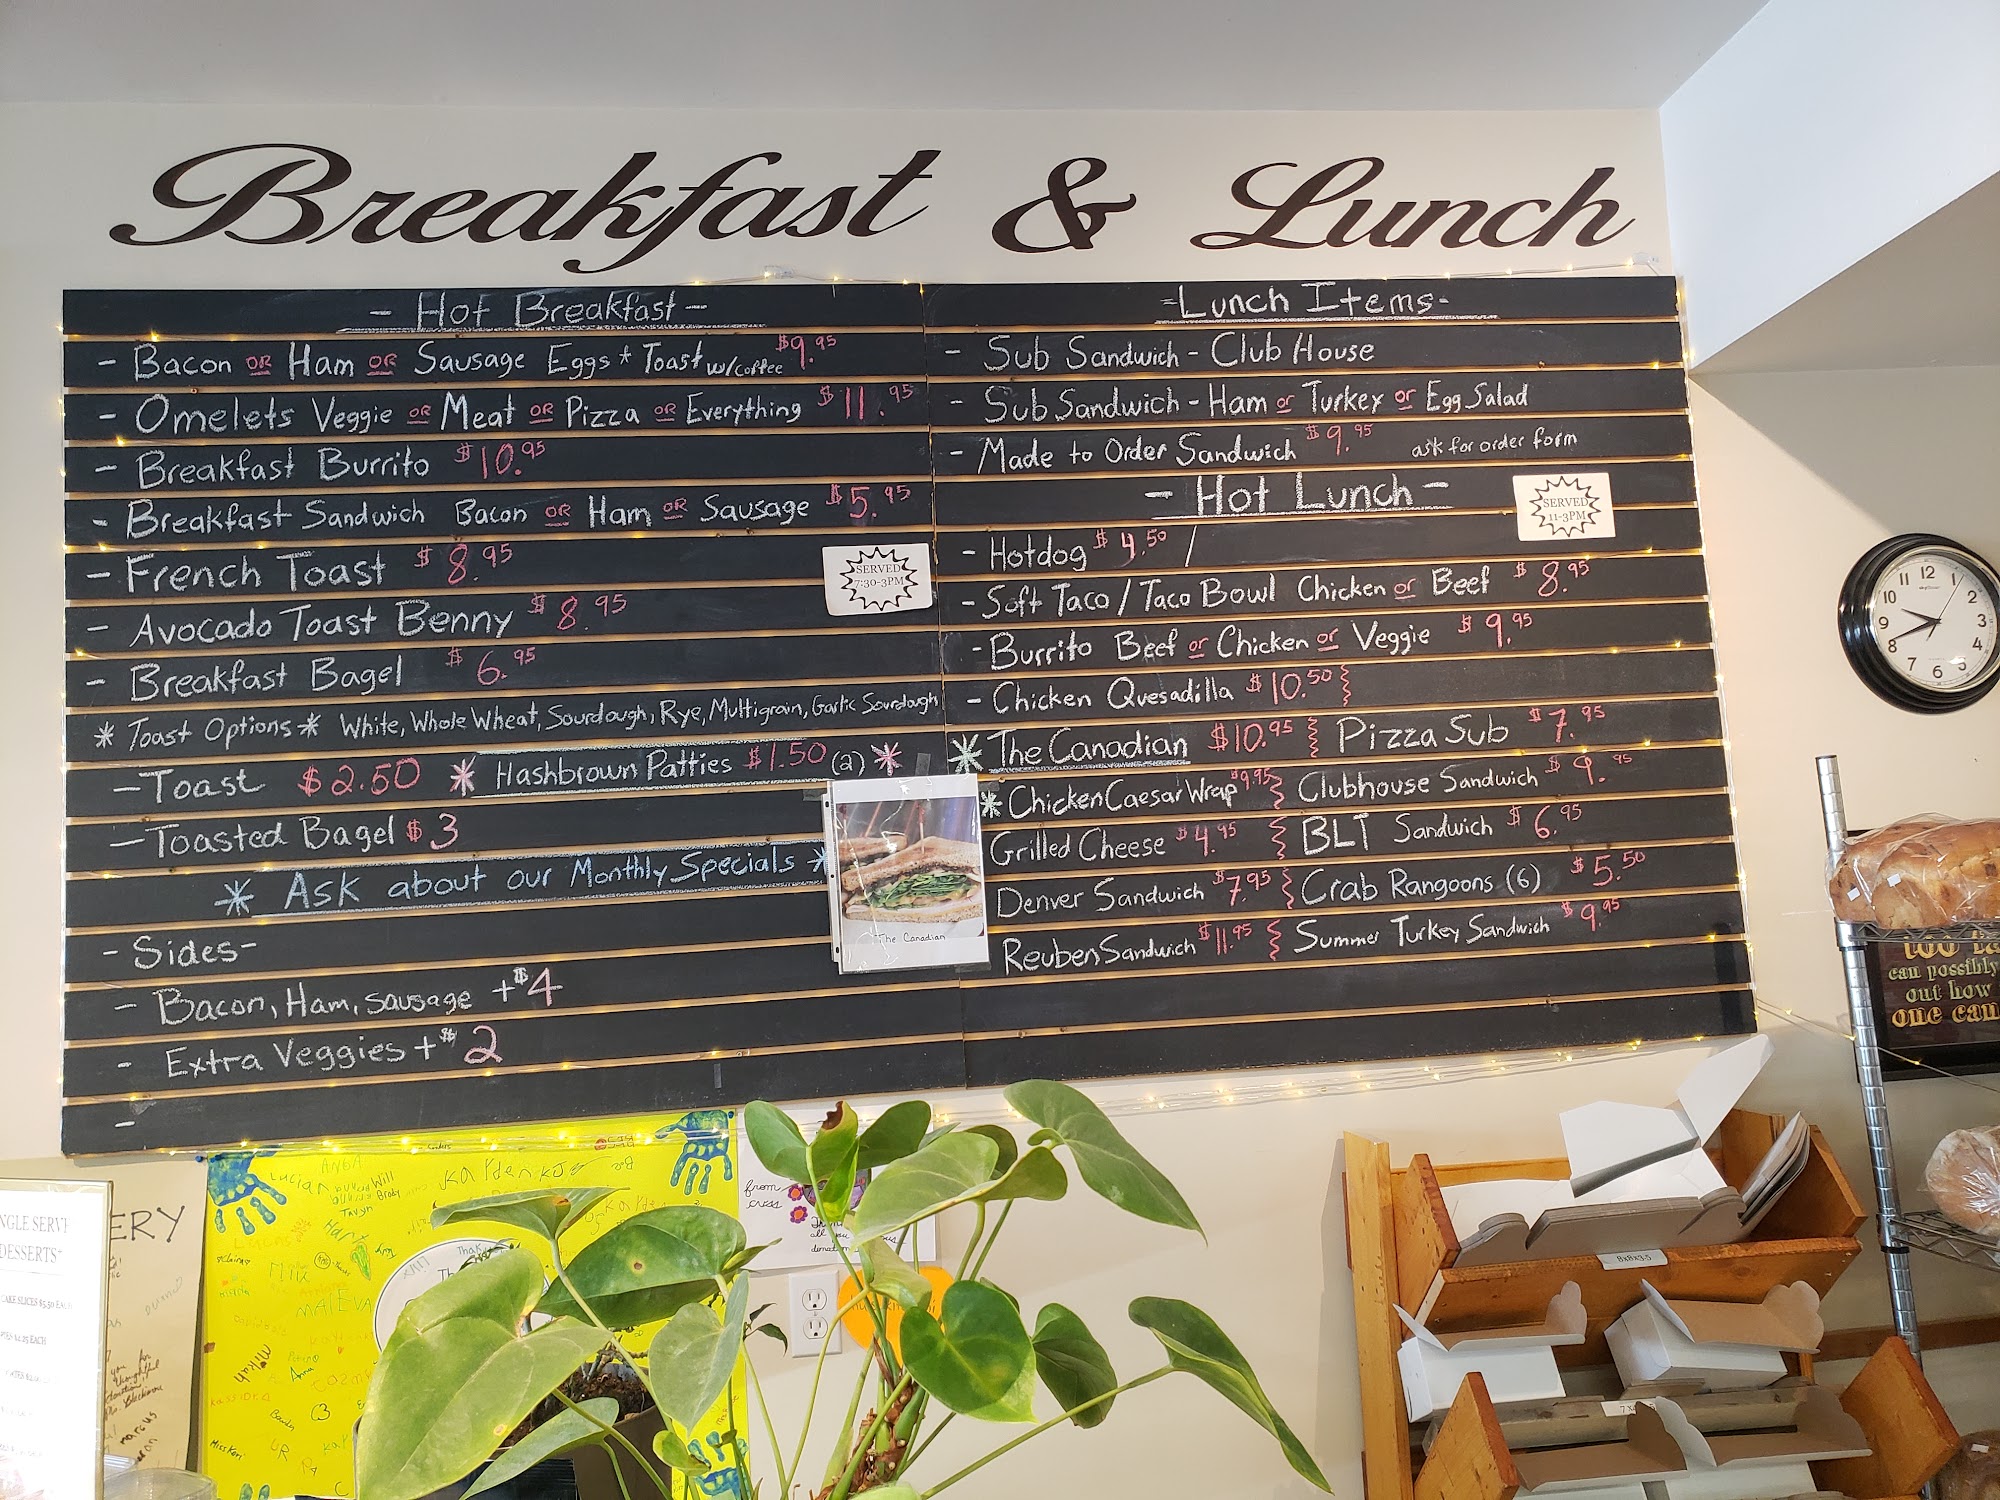 Breakfast & Lunch
- Hot Breakfast -
- Bacon OR Ham OR Sausage Eggs + Toast w/coffee $9.95
- Omelets Veggie OR Meat OR Pizza OR Everything $11.95
- Breakfast Burrito $10.95
- Breakfast Sandwich Bacon OR Ham OR Sausage $5.95
- French Toast $8.95
SERVED
7:30-3PM
- Avocado Toast Benny $8.95
- Breakfast Bagel $6.95
* Toast Options * White, Whole Wheat, Sourdough, Rye, Multigrain, Garlic Sourdough
- Toast $2.50 * Hashbrown Patties $1.50 (2) *
- Toasted Bagel $3
* Ask about our Monthly Specials *
- Sides -
- Bacon, Ham, Sausage +$4
- Extra Veggies +$2
-
- Lunch Items -
- Sub Sandwich - Club House
- Sub Sandwich - Ham or Turkey or Egg Salad
- Made to Order Sandwich $9.95 ask for order form
- Hot Lunch -
SERVED
11-3PM
- Hotdog $4.50 /
- Soft Taco / Taco Bowl Chicken or Beef $8.95
- Burrito Beef or Chicken or Veggie $9.95
- Chicken Quesadilla $10.50
* The Canadian $10.95 Pizza Sub $7.95
* Chicken Caesar Wrap $9.95 Clubhouse Sandwich $9.95
Grilled Cheese $4.95 BLT Sandwich $6.95
Denver Sandwich $7.95 Crab Rangoons (6) $5.50
Reuben Sandwich $11.95 Summer Turkey Sandwich $9.95
The Canadian
12
11
10
9
8
7
6
4
3
2
can possibly
out how
one can
8x8x3.5
ERY
NGLE SERV
DESSERTS
CAKE SLICES $5.50 EACH
Lucian
Will
Brody
Tavyn
Mikah
Anna
from